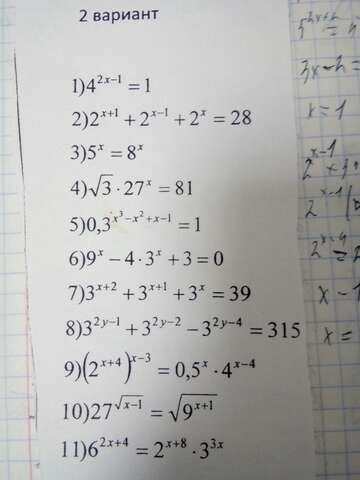 2 вариант
1)4^{2x-1} = 1
2)2^{x+1} + 2^{x-1} + 2^{x} = 28
3)5^{x} = 8^{x}
4)√3 · 27^{x} = 81
5)0,3^{x^{3}-x^{2}+x-1} = 1
6)9^{x} - 4 · 3^{x} + 3 = 0
7)3^{x+2} + 3^{x+1} + 3^{x} = 39
8)3^{2y-1} + 3^{2y-2} - 3^{2y-4} = 315
9)(2^{x+4})^{x-3} = 0,5^{x} · 4^{x-4}
10)27^{√(x-1)} = √(9^{x+1})
11)6^{2x+4} = 2^{x+8} · 3^{3x}
3x-2=
x=1
x-1
x=